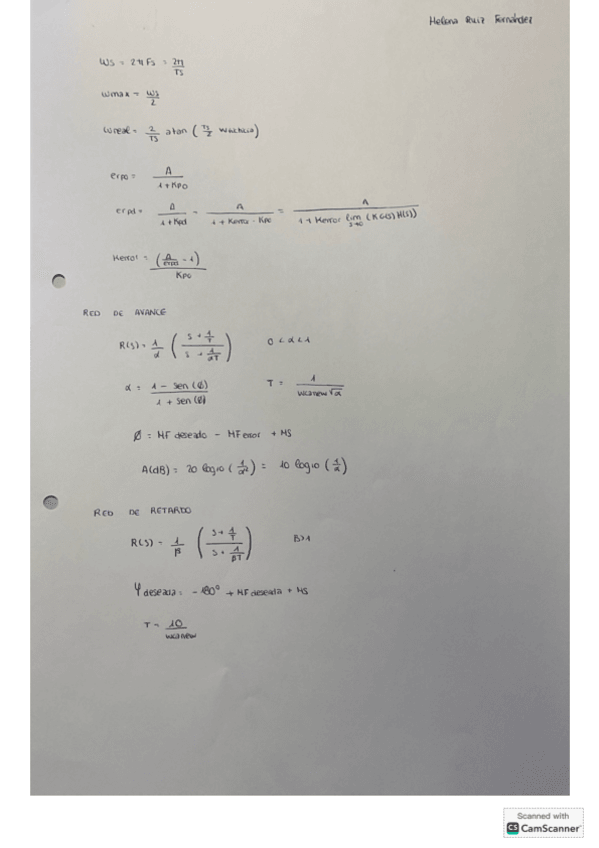 Helena Ruiz Fernández
ωs = 2πFs = 2π/Ts
ωmax = ωs/2
ωreal = 2/Ts atan (Ts/2 ωficticia)
erpo = A/(1+Kpo)
erpd = A/(1+Kpd) = A/(1+Kerror·Kpo) = A/(1+Kerror lim s→0 (KG(s)H(s)))
Kerror = (A/erpd - 1)/Kpo
RED DE AVANCE
R(s) = 1/α ((s+1/T)/(s+1/αT)) 0<α<1
α = (1-sen(Ø))/(1+sen(Ø)) T = 1/(ωcanew√α)
Ø = MF deseado - MF error + MS
A(dB) = 20 log10 (1/α) = 10 log10 (1/α)
RED DE RETARDO
R(s) = 1/β ((s+1/T)/(s+1/βT)) β>1
φ deseada = -180° + MF deseada + MS
T = 10/ωcanew
Scanned with
CS CamScanner